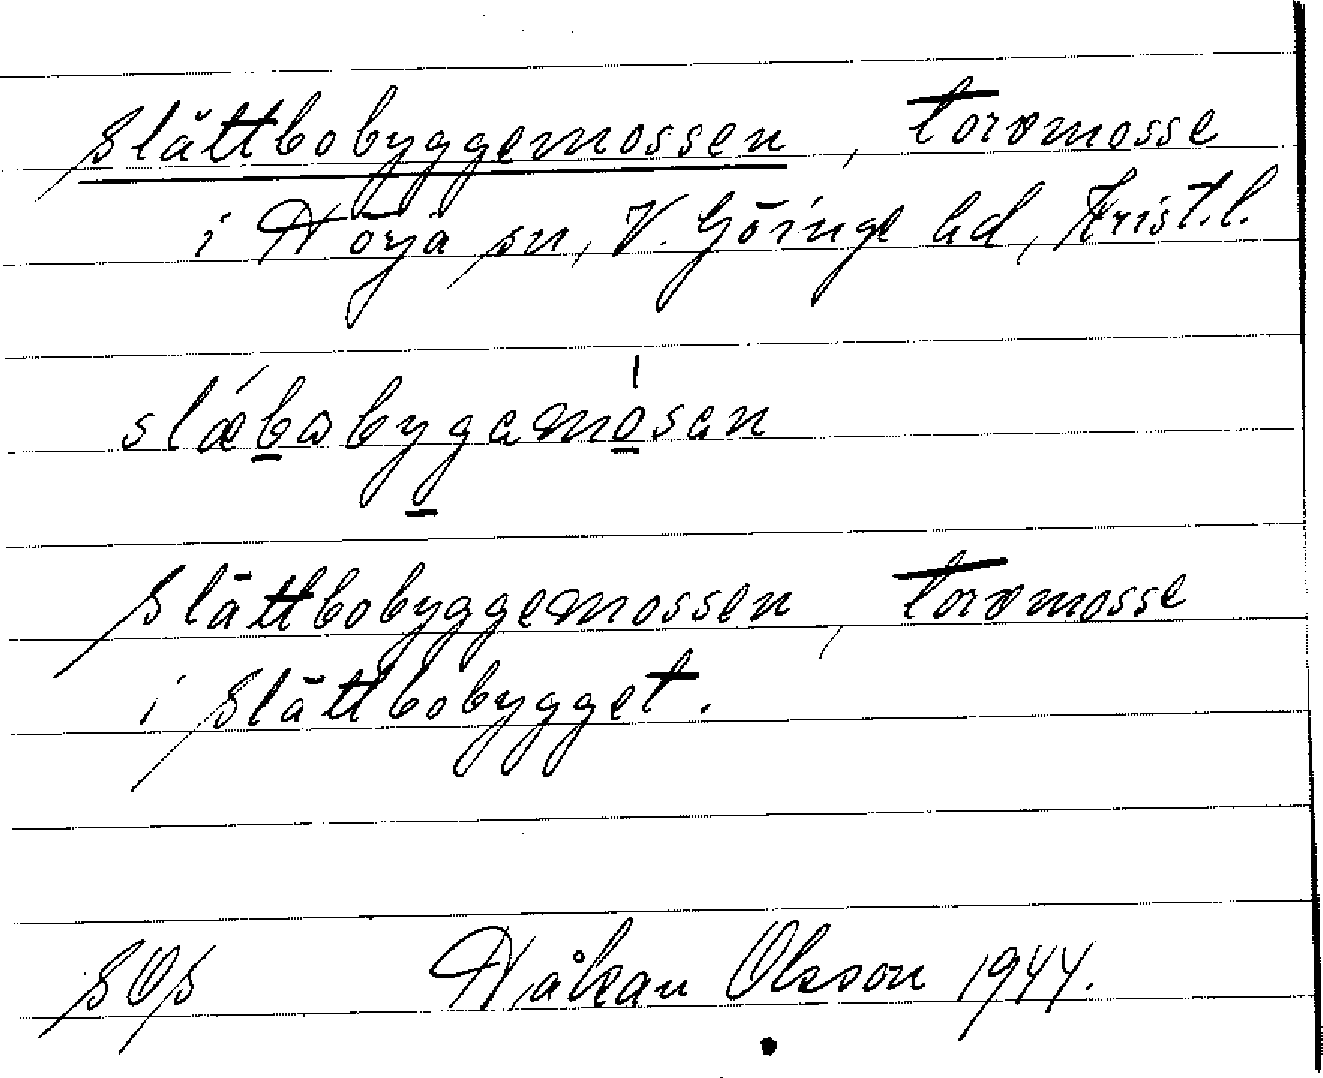 Slättbobyggemossen, torvmosse
i Nörja sn, V. Göinge hd, Krist.l.
slæbobygamosan
Slättbobyggemossen, torvmosse
i Slättbobygget.
SOS Håkan Olsson 1944.